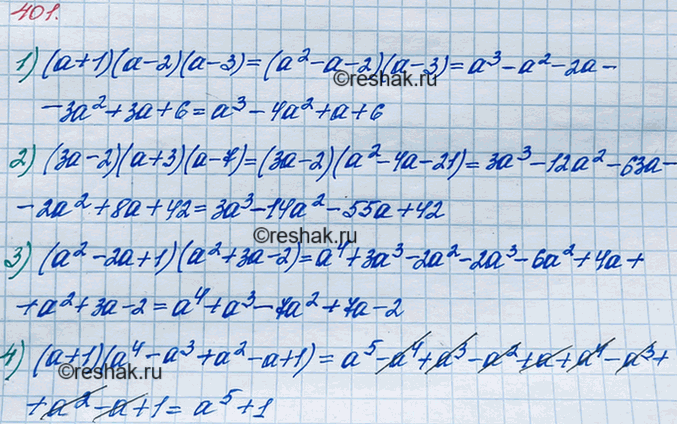 401.
1) (a+1)(a-2)(a-3)=(a²-a-2)(a-3)=a³-a²-2a-
©reshak.ru
-3a²+3a+6=a³-4a²+a+6
2) (3a-2)(a+3)(a-7)=(3a-2)(a²-4a-21)=3a³-12a²-63a-
-2a²+8a+42=3a³-14a²-55a+42
©reshak.ru
3) (a²-2a+1)(a²+3a-2)=a⁴+3a³-2a²-2a³-6a²+4a+
+a²+3a-2=a⁴+a³-7a²+7a-2
4) (a+1)(a⁴-a³+a²-a+1)=a⁵-a⁴+a³-a²+a+a⁴-a³+
©reshak.ru
+a²-a+1=a⁵+1